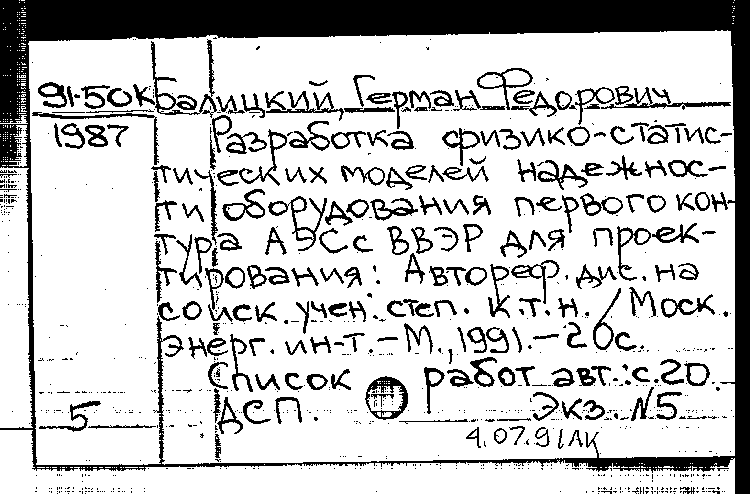 91-50к Балицкий, Герман Федорович.
1987 Разработка физико-статис-
тических моделей надежнос-
ти оборудования первого кон-
тура АЭС с ВВЭР для проек-
тирования: Автореф. дис. на
соиск. учен. степ. к.т.н. / Моск.
энерг. ин-т. – М., 1991. – 20 с.
Список работ авт.: с. 20.
5 ДСП. Экз. №5
4.07.91 АК